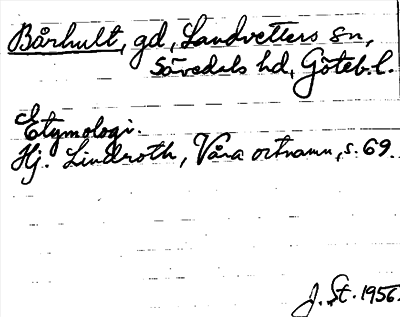 Bårhult, gd, Landvetters sn,
Sävedals hd, Göteb. l.
Etymologi.
Hj. Lindroth, Våra ortnamn, s. 69.
J. St. 1956.